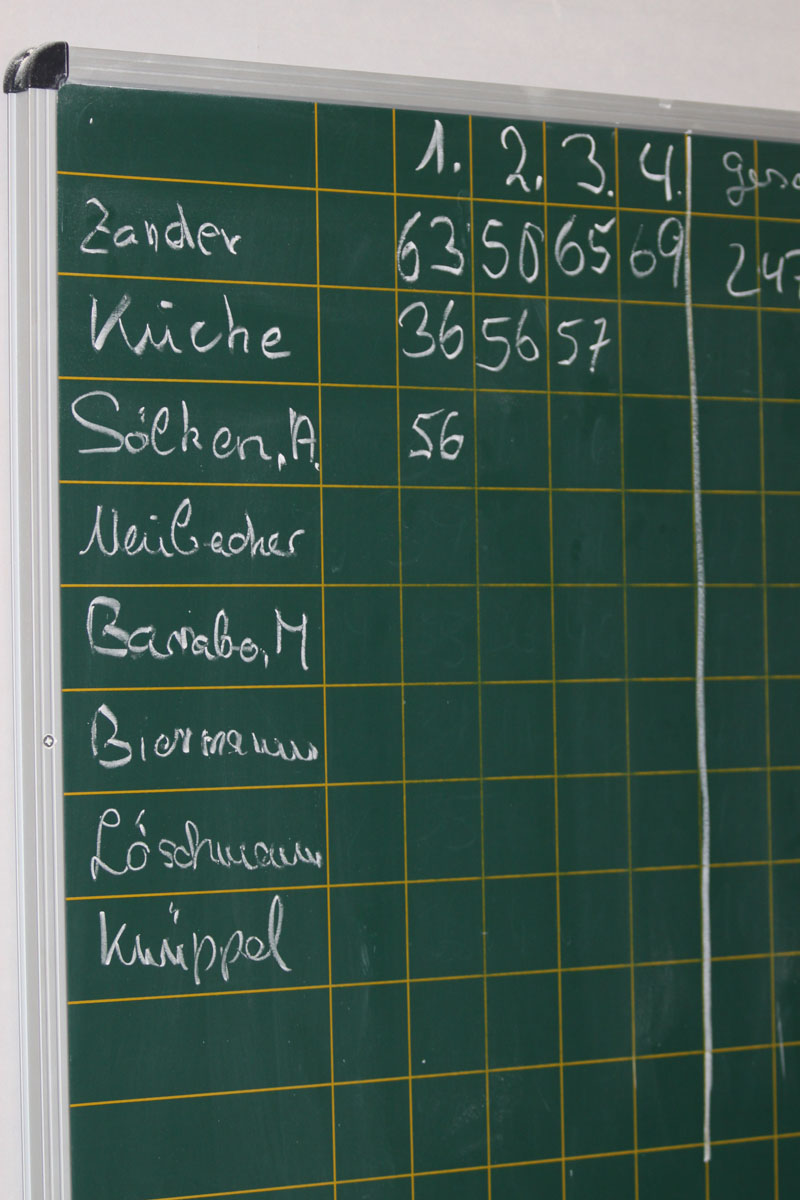 1. 2. 3. 4. ges
Zander 63 50 65 69 247
Küche 36 56 57
Sölken, A. 56
Neubacher
Barabo, M
Biermann
Löschmann
Knüppel